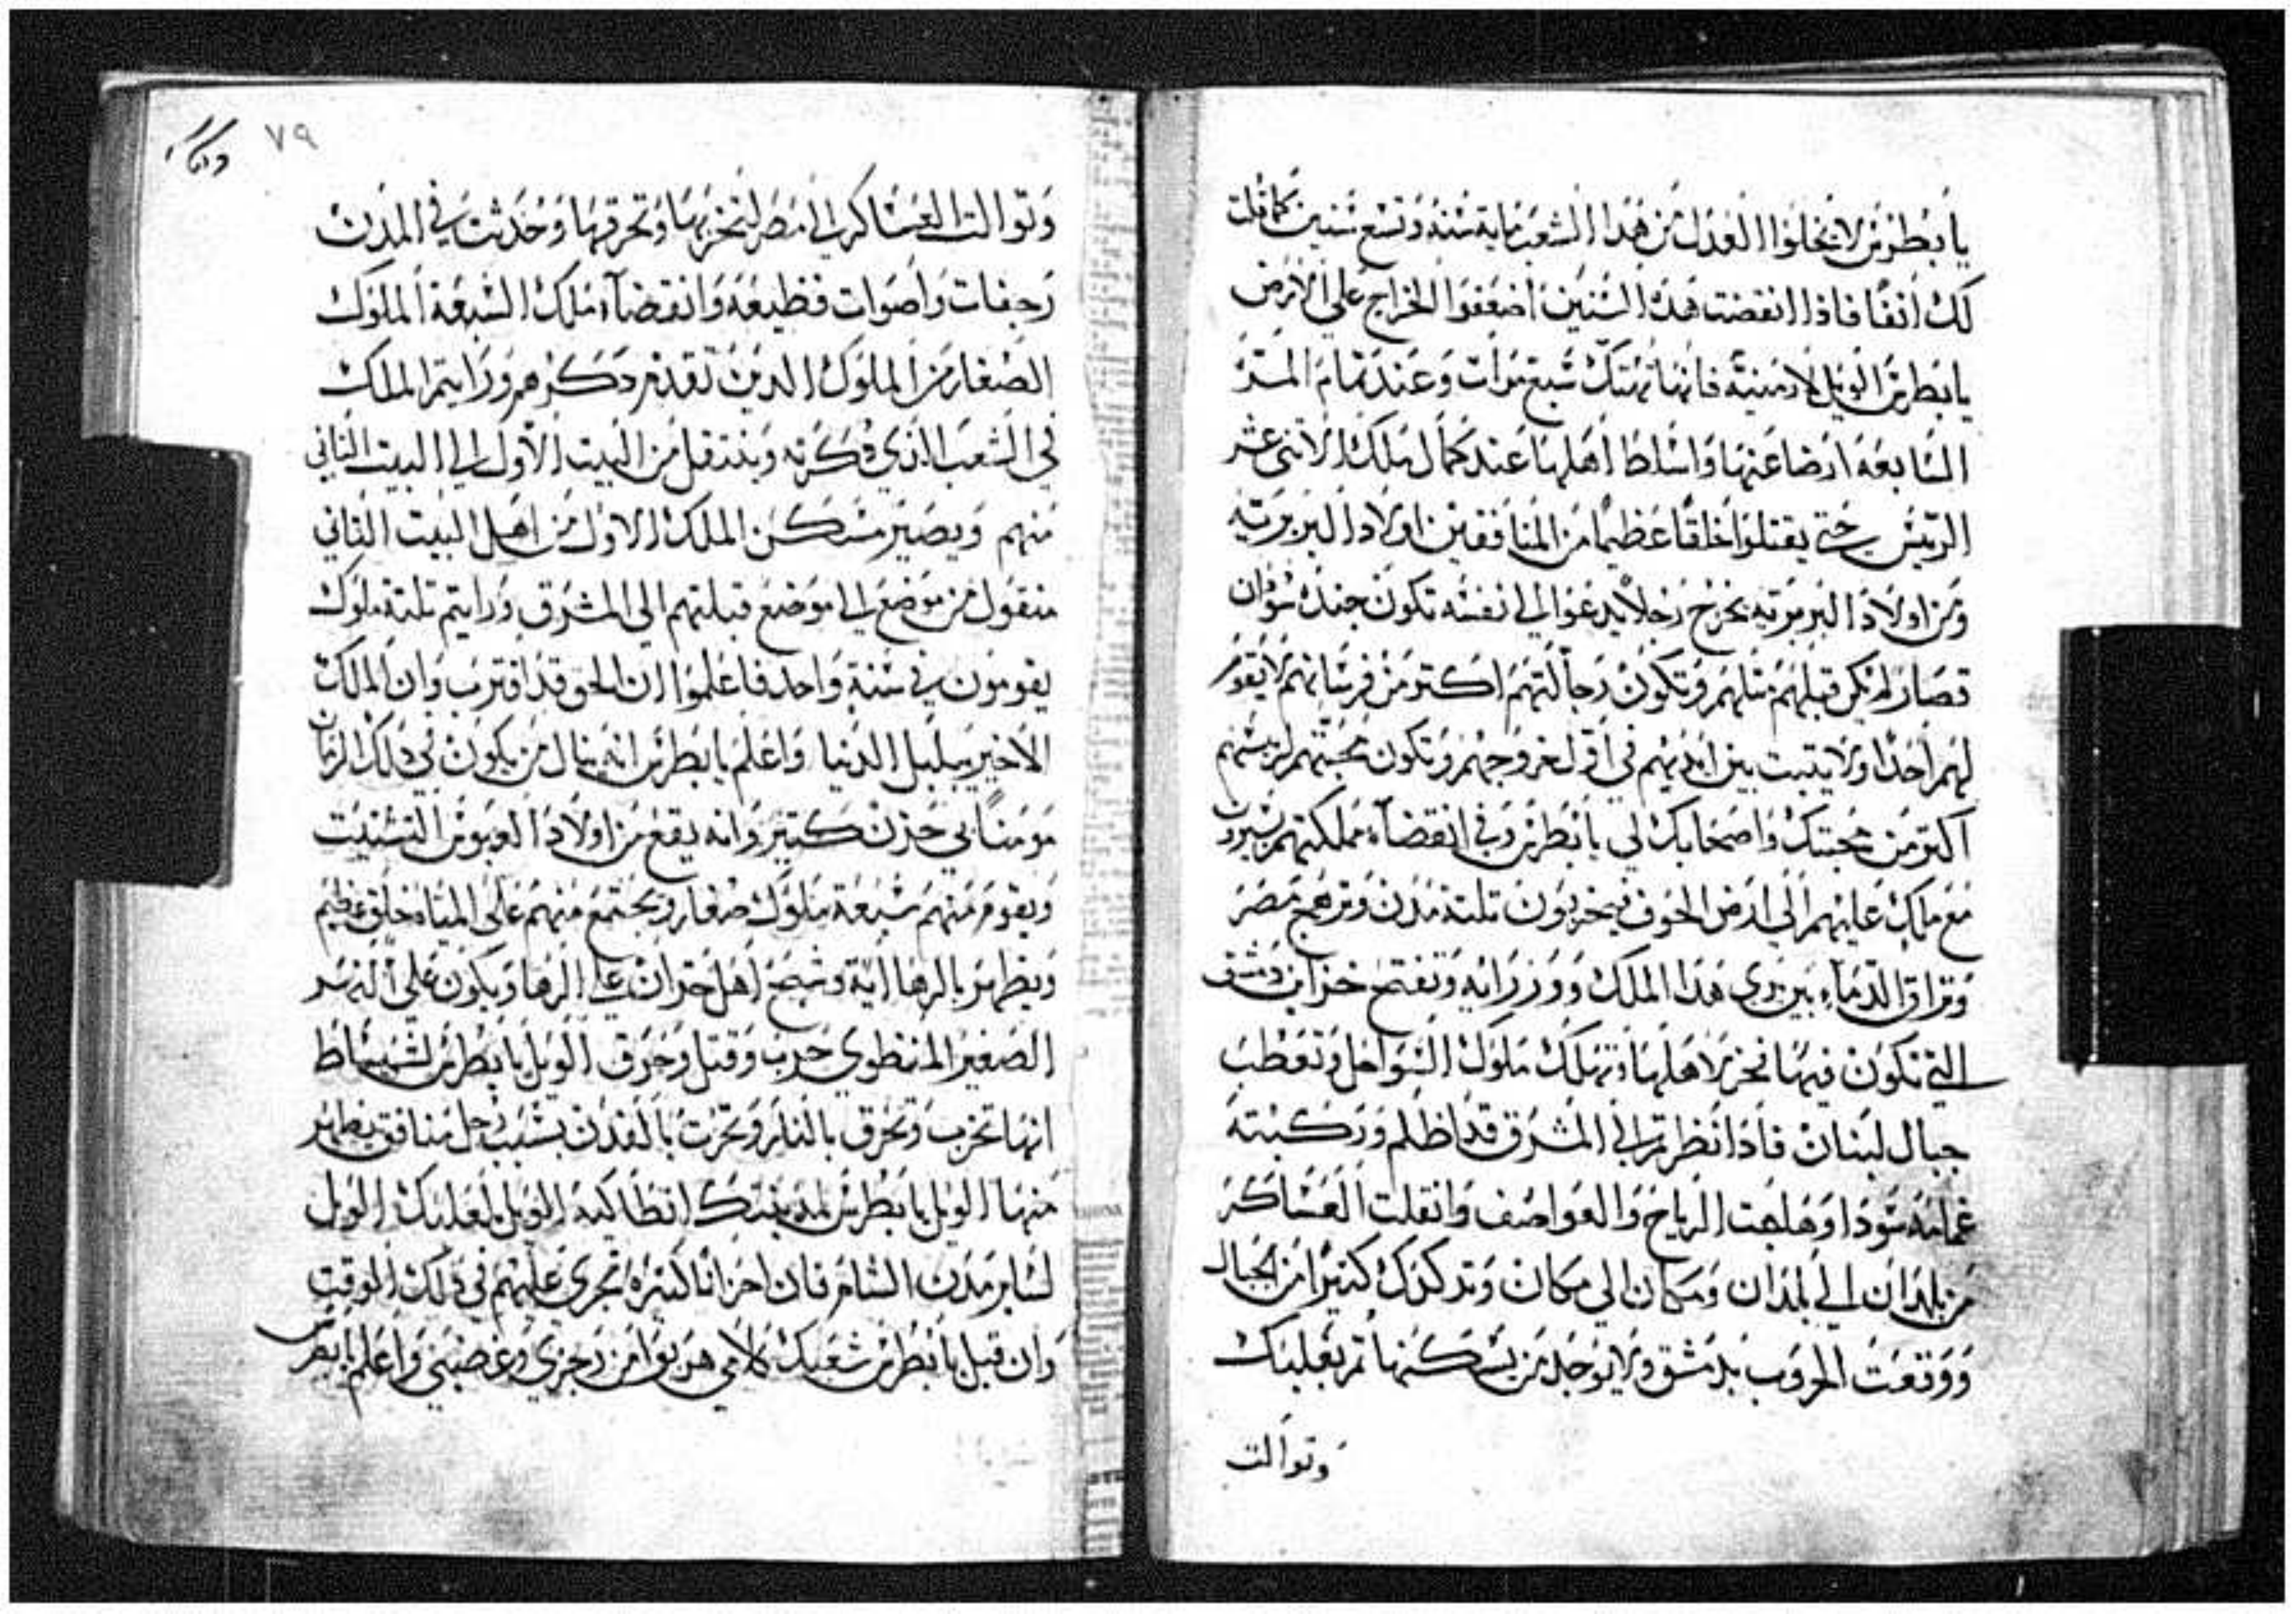 يا بطرس لا يخلوا العدل من هذا الشعب ماية سنة وتسع سنين كما قلت
لك انفا فاذا انقضت هذه السنين اضعفوا الخراج على الارض
يا بطرس الويل لارمينية فانها تهتك سبع مرات وعند تمام المرة
السابعة ارضا عنها واسلط اهلها عند كمال ملك الاثنى عشر
الريس حتى يقتلوا خلقا عظيما من المنافقين اولاد البربرية
ومن اولاد البربرية يخرج رجلا يدعوا الى نفسه تكون جنده سودان
قصار لم يكن قبلهم مثلهم وتكون رجالتهم اكتر من فرسانهم لا يقوم
لهم احدا ولا يتبت بين ايديهم في اول خروجهم وتكون محبتهم لريسهم
اكتر من محبتك واصحابك لي يا بطرس وفي انقضآء مملكتهم يسيرون
مع ملك عليهم الى ارض الخوف فيخربون تلتة مدن وترهج مصر
وتراق الدمآء بين يدي هذا الملك ووزرايه وتفتح خزاين دمشق
التي تكون فيها تخرب لاهلها وتهلك ملوك السواحل وتعطب
جبال لبنان فاذا نظرتم الى المشرق قد اظلم وركبته
غمامة سودا وهلعت الرياح والعواصف وانقلت العساكر
من بلدان الى بلدان ومكان الى مكان وتدكدك كتيرا من الجبال
ووقعت الحروب بدمشق ولا يوجد من يسكنها تم بعلبك
وتوالت
٧٩
وتوالت العساكر الى مصر لتخربها وتحرقها وحدثت في المدن
رجفات واصوات فظيعة وانقضآء ملك السبعة الملوك
الصغار من الملوك الدين تقدم دكرهم ورايتم الملك
في الشعب الذي دكرته وينتقل من البيت الاول الى البيت التاني
منهم ويصير مسكن الملك الاول من اهل البيت التاني
منقول من موضع الى موضع قبلتهم الى المشرق ورايتم تلتة ملوك
يقومون في سنة واحد فاعلموا ان الحق قد اقترب وان الملك
الاخير يبلبل الدنيا واعلم يا بطرس انه ينال من يكون في دلك الزمان
مومنا بي حزن كتير وانه يقع من اولاد العبوس التشتيت
ويقوم منهم سبعة ملوك صغار ويجتمع منهم على المياه خلق عظيم
ويظهر بالرها اية وتبصح اهل حران على الرها ويكون على النهر
الصغير المنطوي حرب وقتل وحرق الويل يا بطرس لشميساط
انها تخرب وتحرق بالنار وتحرت بالفدن بسبب رجل منافق يظهر
منها الويل يا بطرس لمدينتك انطاكية الويل لبعلبك الويل
لساير مدن الشام فان احزانا كتيره تجري عليهم في دلك الوقت
وان قبل يا بطرس شعبك كلامي هربوا من رجزي وغضبي واعلم يا بطرس